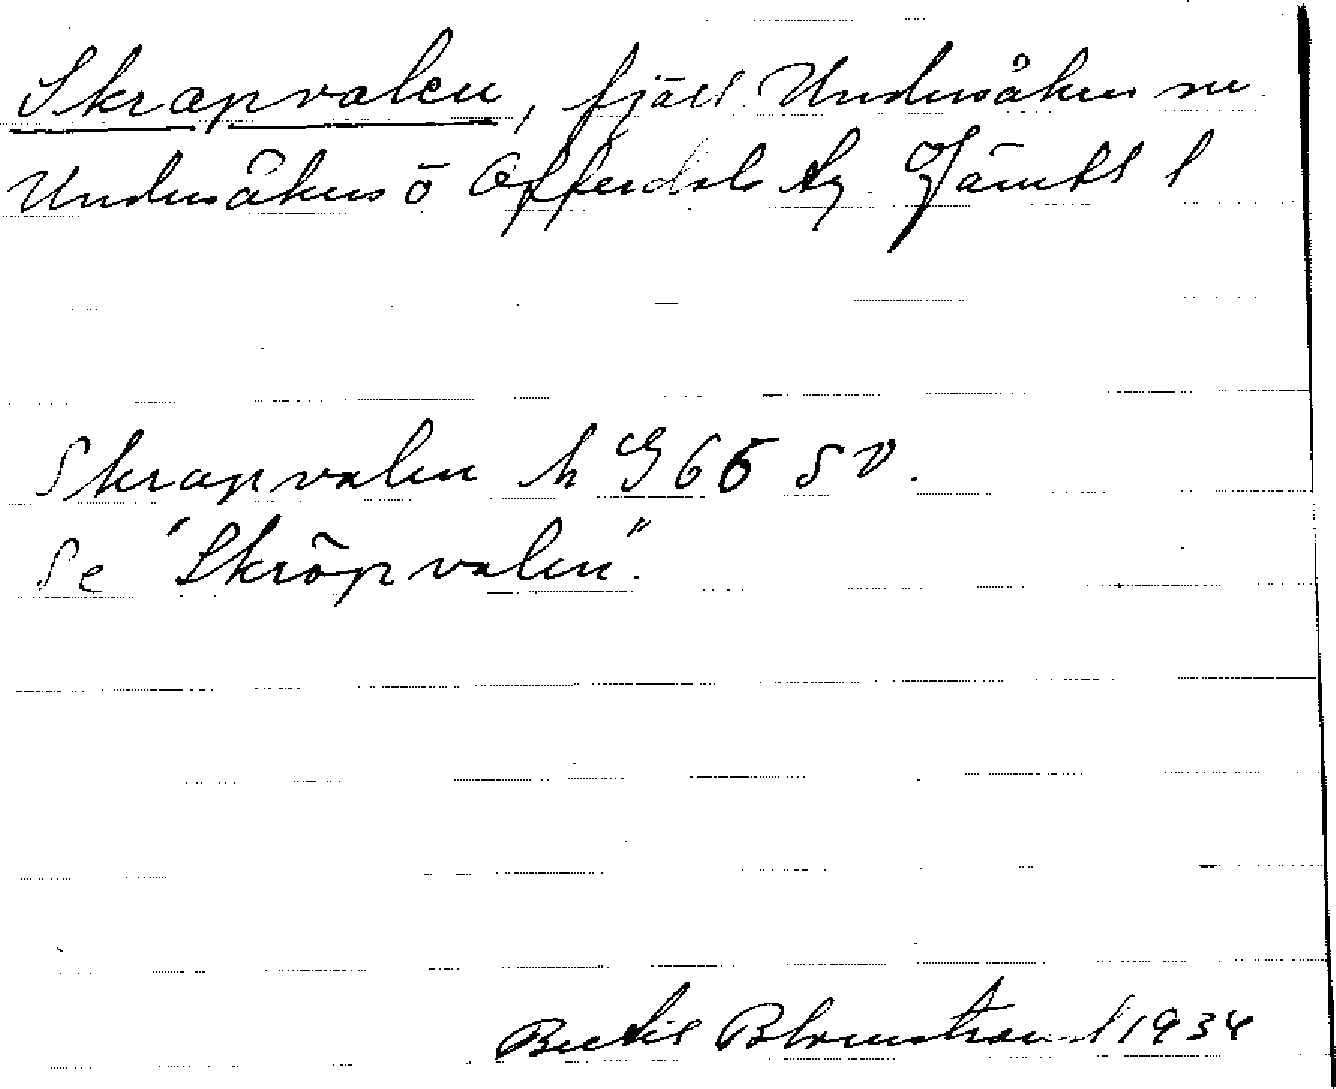 Skrapvalen, fjäll Undersåkers sn
Undersåkers o Offerdals tg Jämtl l
Skrapvalen h G 66 SV.
Se "Skröpvalen".
Bertil Blomstrand 1934